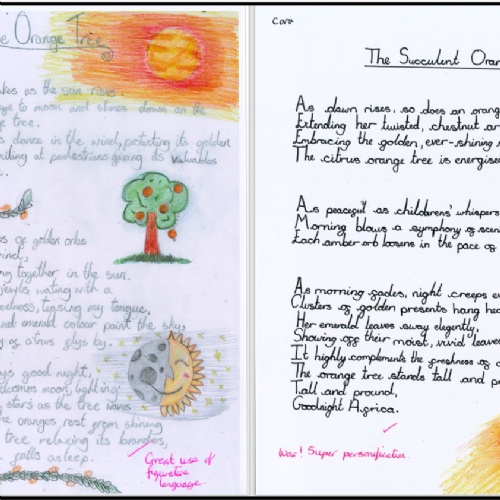 e Orange Tree
kes as the sun rises
ge to moon and shines down on the
e tree.
s dance in the wind, protecting its golden
smiling at pedestrians giving its valuables
es of golden orbs
wind,
ng together in the sun.
jewels waiting with a
edness, teasing my tongue,
nd emerald colour paint the sky,
y of citrus glys by.
ys good night,
elcomes moon, lighting
stars as the tree waves
he oranges rest from shining
tree relaxing its branches,
falls asleep.
Great use of
figurative
language.
Cara
The Succulent Oran
As dawn rises, so does an orang
Extending her twisted, chestnut ar
Embracing the golden, ever-shining s
The citrus orange tree is energise
As peaceful as childrens' whispers
Morning blows a symphony of scen
Each amber orb loosens in the pace of
As morning fades, night creeps ev
Clusters of golden presents hang hea
Her emerald leaves sway elegently,
Showing off their moist, vivid leaves
It highly complements the greshness of
The orange tree stands tall and p
Tall and pround,
Goodnight Agrica.
Wow! Super personification.